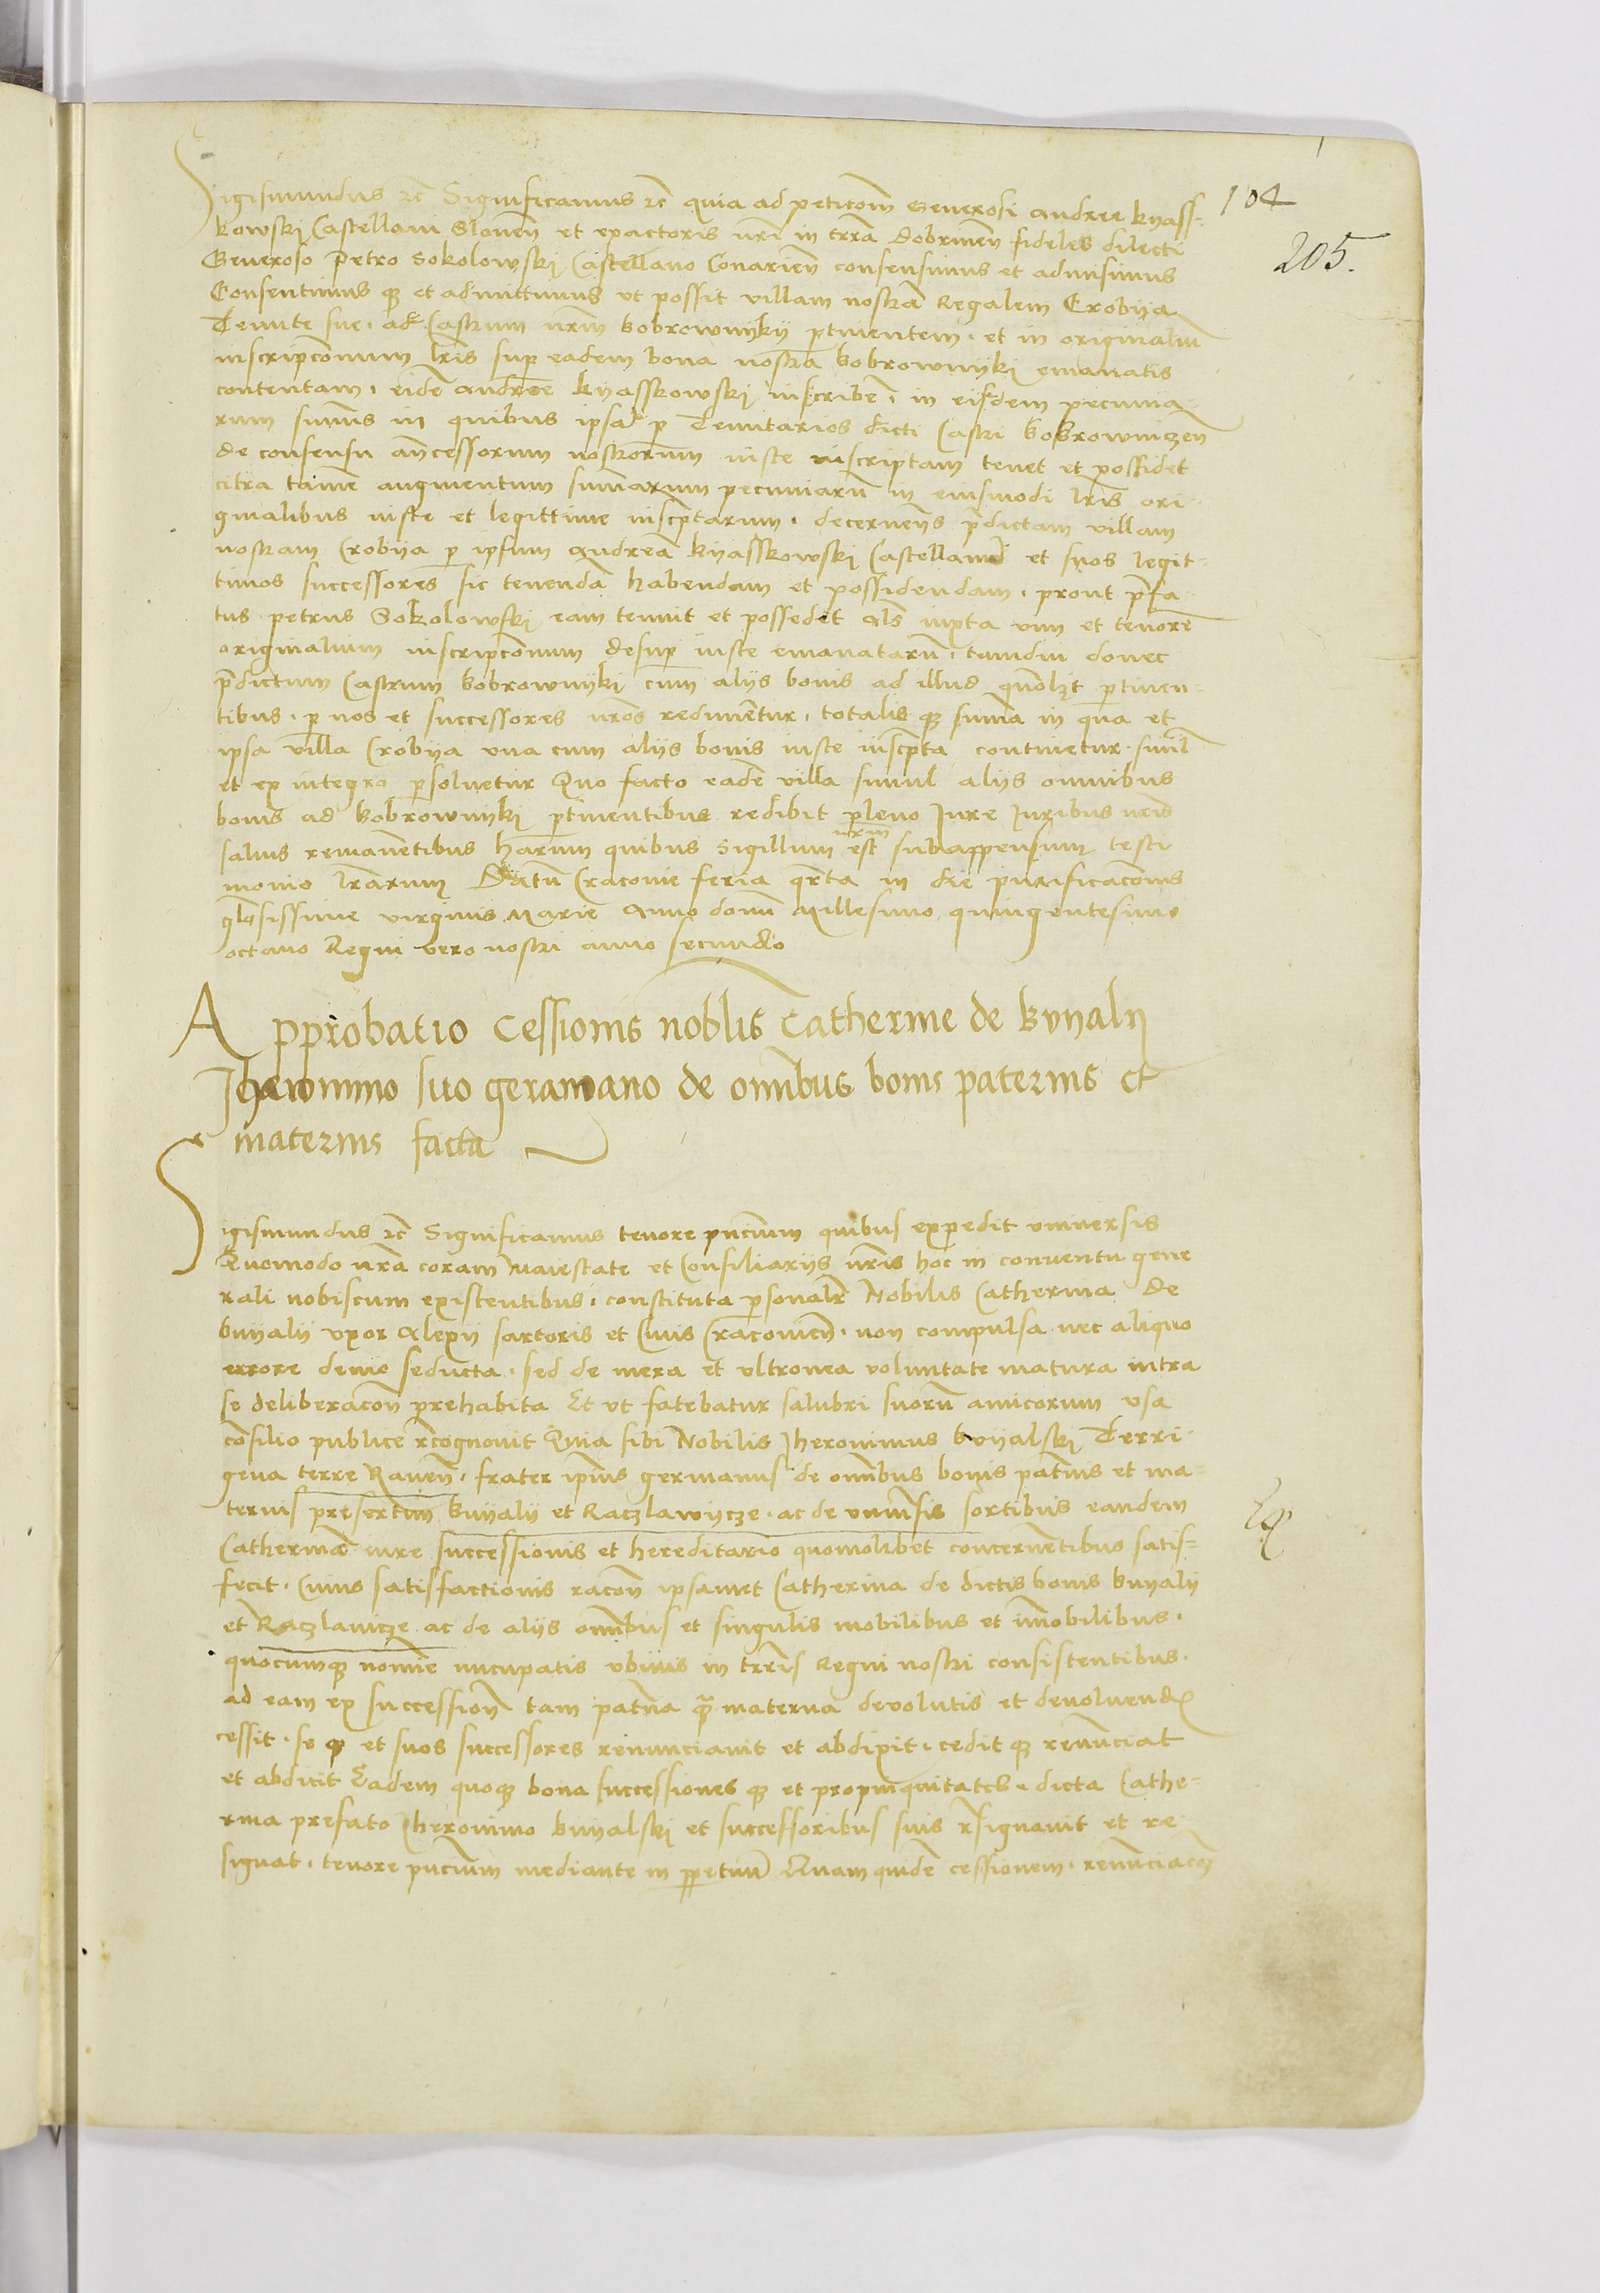 104
205.
Sigismundus etc Significamus etc quia ad peticõm Generosi Andree Kyass-
kowski Castellani Slonen̄ et exactoris nr̄i in terra Dobrinen̄ fideles dilecti
Generoso Petro Sokolowski Castellano Conarien̄ consensimus et admisimus
Consentimusq; et admittimus vt possit villam nostrā Regalem Crobya
Tenute sue · ad Castrum nrm̄ bobrownyky ptinentem · et in originaliū
inscripcõnum lr̄is sup eadem bona nostra bobrownyki emanatis
contentam · eidē Andree kyasskowski inscribere · in eisdem pecunia-
rum sum̄is in quibus ipsā p Tenutarios dicti Castri bobrowniczen̄
de consensu an̄cessorum nostrorum iuste inscriptam tenet et possidet
citra tamē augmentum sum̄arum pecuniarū in eiusmodi lr̄is ori-
ginalibus iuste et legittime inscp̄tarum · decernens p̄dictam villam
nostram Crobya p ipsum Andreā kyasskowski Castellanū et suos legit-
timos successores sic tenendā habendam et possidendam · prout p̄fa-
tus petrus Sokolowski eam tenuit et possedit als̄ iuxta vim et tenorē
originalium inscripcõnum desup iuste emanatarū · tamdiu donec
p̄dictum Castrum bobrownyki cum alijs bonis ad illud qmōlzt ptinen-
tibus · p nos et successores nr̄os redimētur · totalisq; sum̄a in qua et
ipsa villa Crobya vna cum alijs bonis iuste inscp̄ta continetur · simł
et ex integro psoluetur Quo facto eadē villa simul alijs omnibus
bonis ad bobrownyki ptinentibus redibit pleno Jure Juribus nr̄is
saluis remanētibus harum quibus Sigillum nrm̄ est subappensum testi
monio lr̄arum Datū Cracouie feria qr̄ta in die purificacõnis
glōsissime virginis Marie Anno domī Millesimo quingentesimo
octauo Regni vero nostri anno secundo
Approbatio Cessionis noblis Catherine de Bvyaly
Jheronimo suo geramano de omībus bonis paternis et
maternis facta
Sigismundus etc Significamus tenore pn̄cium quibus expedit vniuersis
Quomodo nr̄a coram Maiestate et Consiliarijs nr̄is hoc in conuentu gene
rali nobiscum existentibus · constituta psonalr̄ Nobilis Catherina de
buyaly vxor Alexy sartoris et Ciuis Cracouien̄ · non compulsa nec aliquo
errore deuio seducta · sed de mera et vltronea voluntate matura intra
se deliberacõn̄ prehabita Et vt fatebatur salubri suorū amicorum vsa
cōsilio publice rcognouit Quia sibi Nobilis Jheronimus bvyalski Terri-
gena terre Rauen̄ · frater ipīus germanus de omībus bonis pat̄nis et ma-
ternis presertim buyaly et Raczlawycze · ac de vniūsis sortibus eandem
Catherinā iure successionis et hereditario quomolibet concernētibus satis-
fecit · Cuius satisfactionis racōn̄ ipsamet Catherina de dictis bonis buyaly
et Raczlauicze ac de alijs omībus et singulis mobilibus et im̄obilibus ·
quocumq; nomīe nūcupatis vbiuis in terris Regni nostri consistentibus ·
ad eam ex succession̄ tam pat̄na q̄ materna deuolutis et deuoluendis
cessit · seq; et suos successores renunciauit et abdixit · ceditq; renūciat
et abdicit Eadem quoq; bona successionesq; et propinquitates · dicta Cathe-
rina prefato Jheronimo buyalski et successoribus suis rsignauit et re-
signat · tenore pn̄cium mediante in ppetuū Quam quidē cessionem · renūciacōn̄